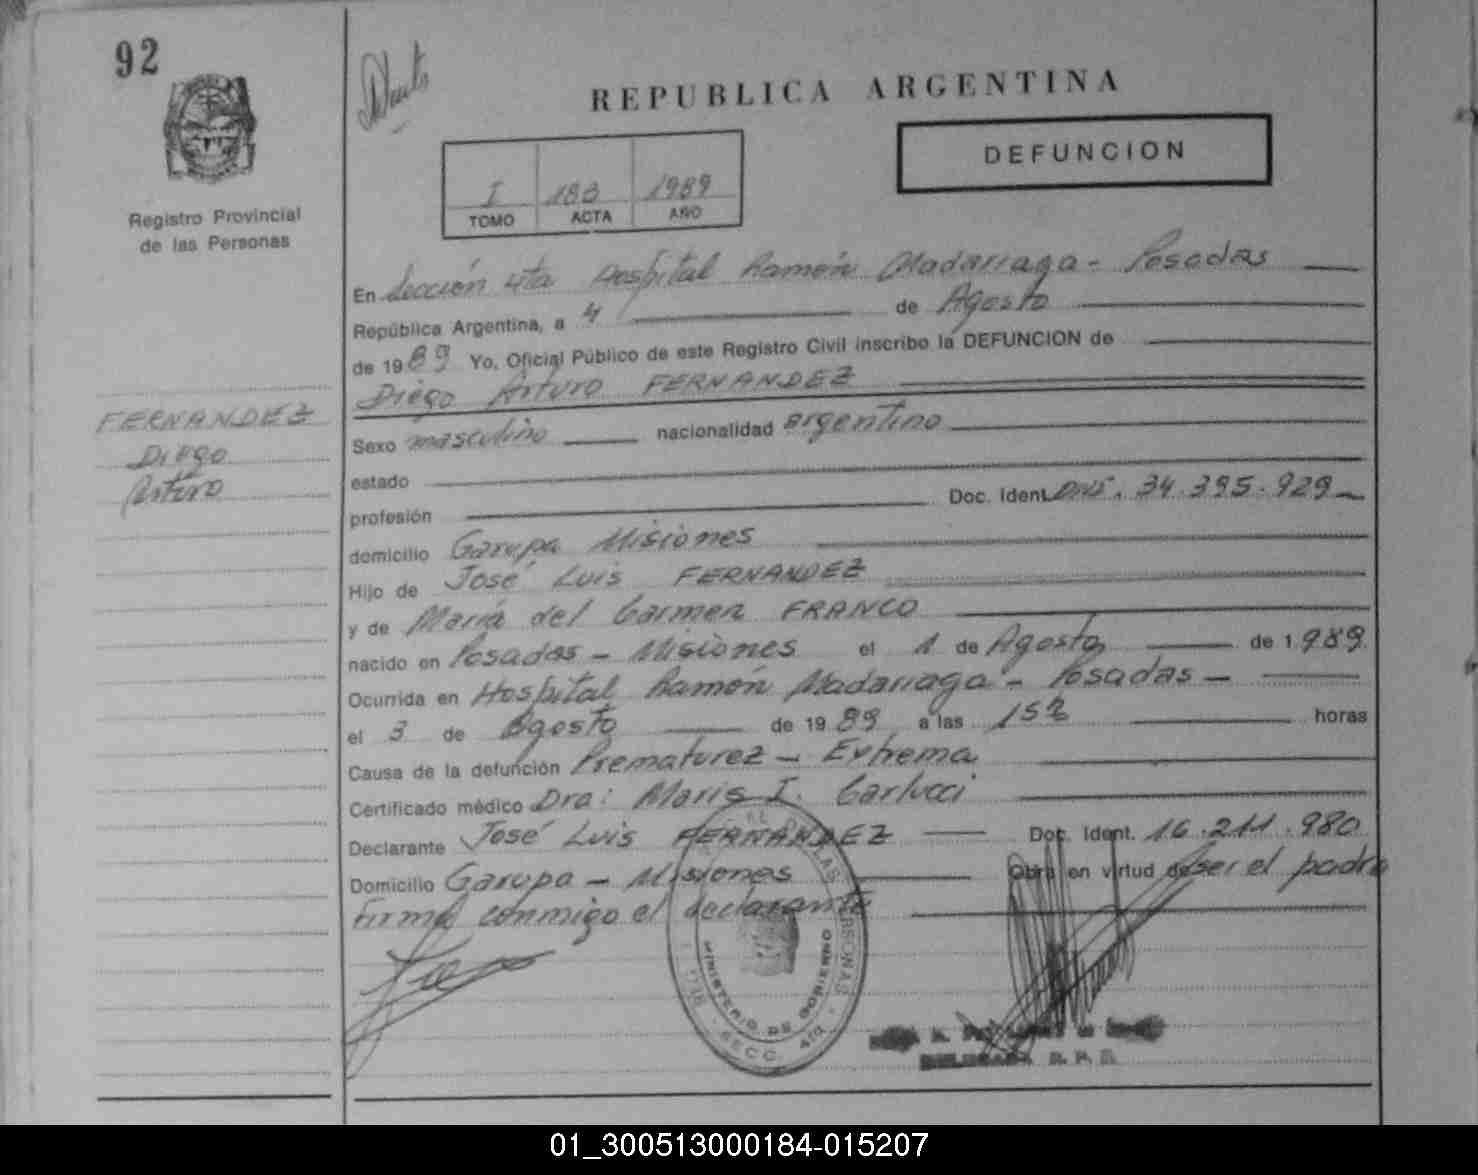 92
REPUBLICA ARGENTINA
DEFUNCION
I 183 1989
TOMO ACTA AÑO
Registro Provincial
de las Personas
En Sección 4ta Hospital Ramón Madariaga - Posadas
República Argentina, a 4 de Agosto
de 1989 Yo, Oficial Público de este Registro Civil inscribo la DEFUNCION de
Diego Arturo FERNANDEZ
FERNANDEZ
Diego
Arturo
Sexo masculino nacionalidad argentino
estado
profesión Doc. Ident. DNI. 34.395.929
domicilio Garupa Misiones
Hijo de José Luis FERNANDEZ
y de María del Carmen FRANCO
nacido en Posadas - Misiones el 1 de Agosto de 1.989
Ocurrida en Hospital Ramón Madariaga - Posadas -
el 3 de Agosto de 1989 a las horas
Causa de la defunción Prematurez - Extrema
Certificado médico Dra: Maris I. Carlucci
Declarante José Luis FERNANDEZ Doc. Ident. 16.211.980
Domicilio Garupa - Misiones Obra en virtud de ser el padre
Firma conmigo el declarante
DE LAS PERSONAS
MINISTERIO DE GOBIERNO
SECC. 4ta
01_300513000184-015207